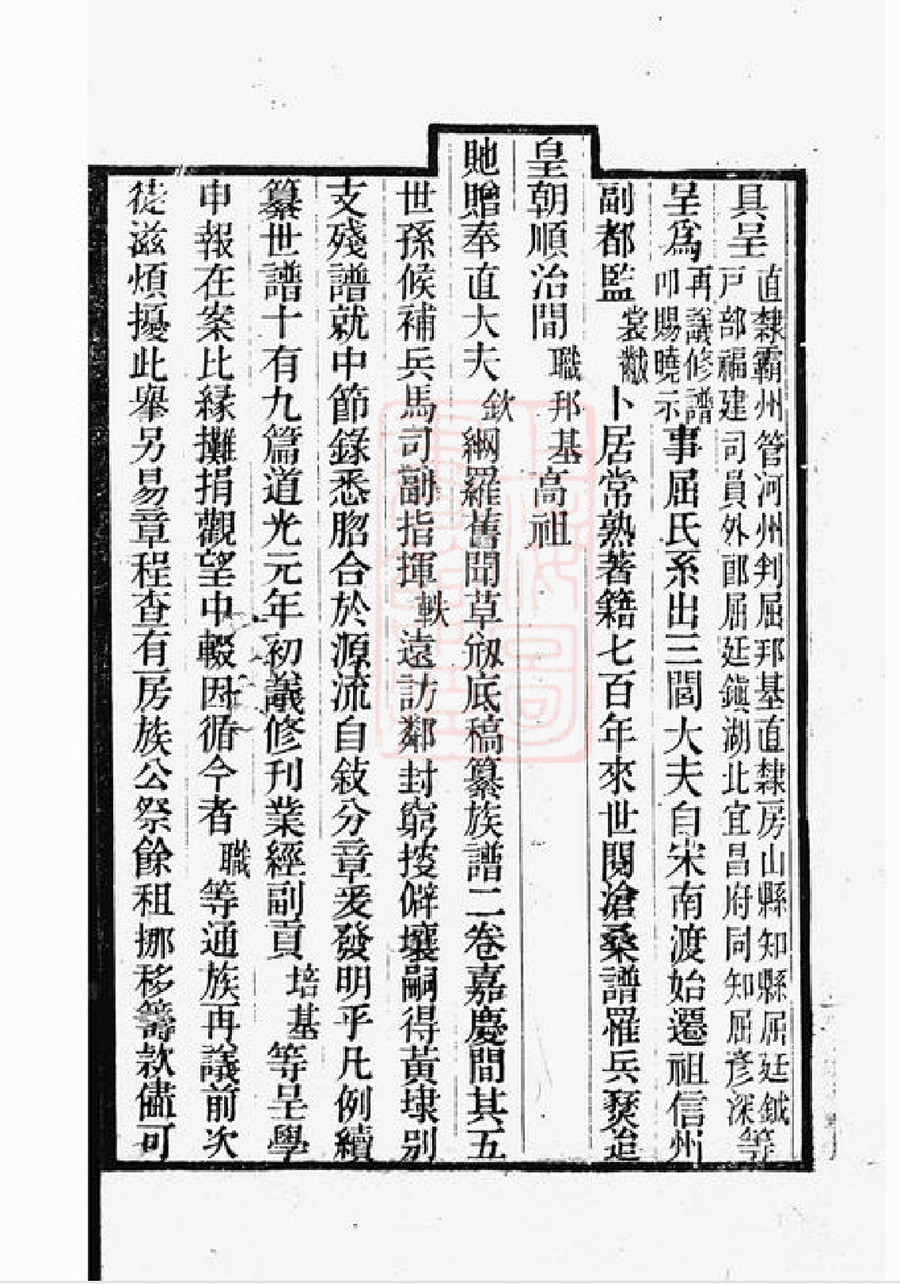 具呈直隸霸州管河州判屈邦基直隸房山縣知縣屈廷鉞等戶部福建司員外郎屈廷鎮湖北宜昌府同知屈彦深
呈爲再議修譜叩賜曉示事屈氏系出三閭大夫自宋南渡始遷祖信州
副都監裳黻卜居常熟著籍七百年來世閱滄桑譜罹兵燹迨
皇朝順治間職邦基高祖
貤贈奉直大夫欽網羅舊聞草刱底稿纂族譜二卷嘉慶間其五
世孫候補兵馬司副指揮軼遠訪鄰封窮搜僻壤嗣得黃埭别
支殘譜就中節錄悉脗合於源流自敍分章爰發明乎凡例續
纂世譜十有九篇道光元年初議修刊業經副貢培基等呈學
申報在案比緣攤捐觀望中輟因循今者職等通族再議前次
徒滋煩擾此舉另易章程查有房族公祭餘租挪移籌款儘可